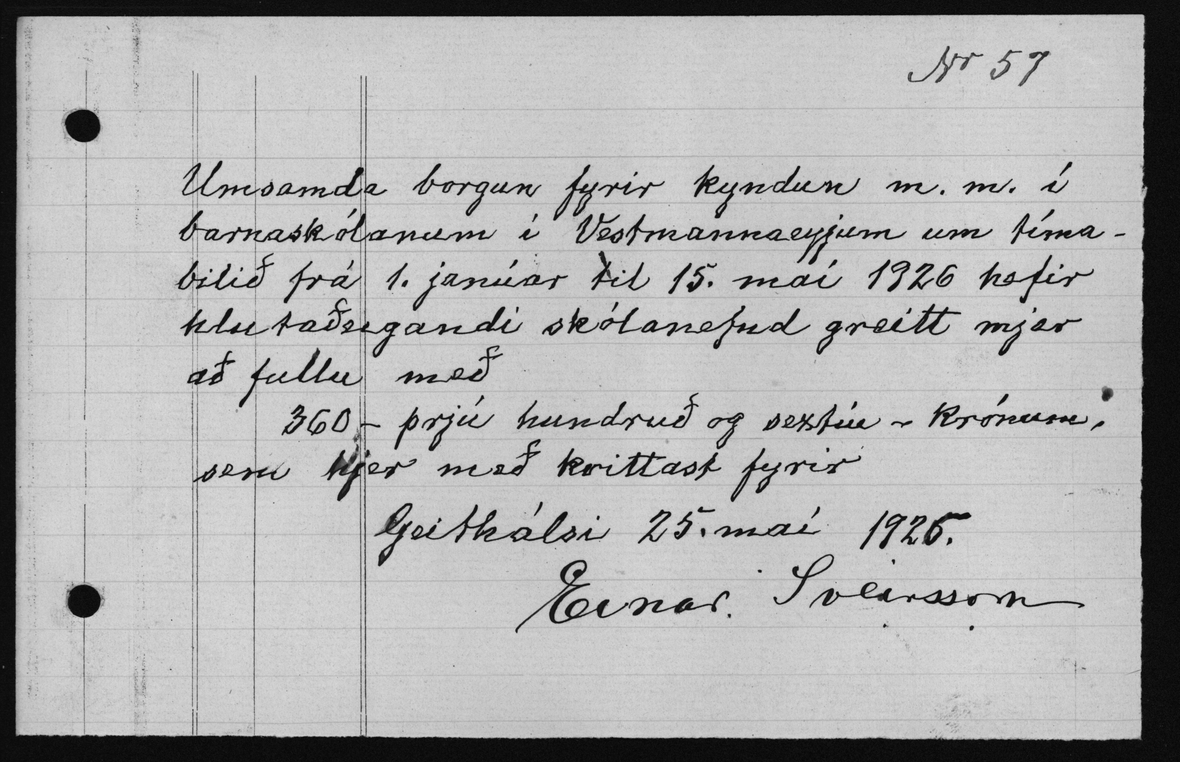 Nr 57
Umsamda borgun fyrir kyndun m. m. í
barnaskólanum í Vestmannaeyjum um tíma-
bilið frá 1. janúar til 15. maí 1926 hefir
hlutaðeigandi skólanefnd greitt mjer
að fullu með
360 - þrjú hundruð og sextíu - krónum,
sem hjer með kvittast fyrir
Geithálsi 25. maí 1926.
Einar Sveinsson